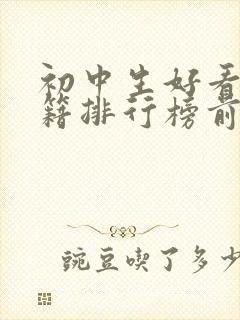 初中生好看
籍排行榜前
豌豆喫了多少